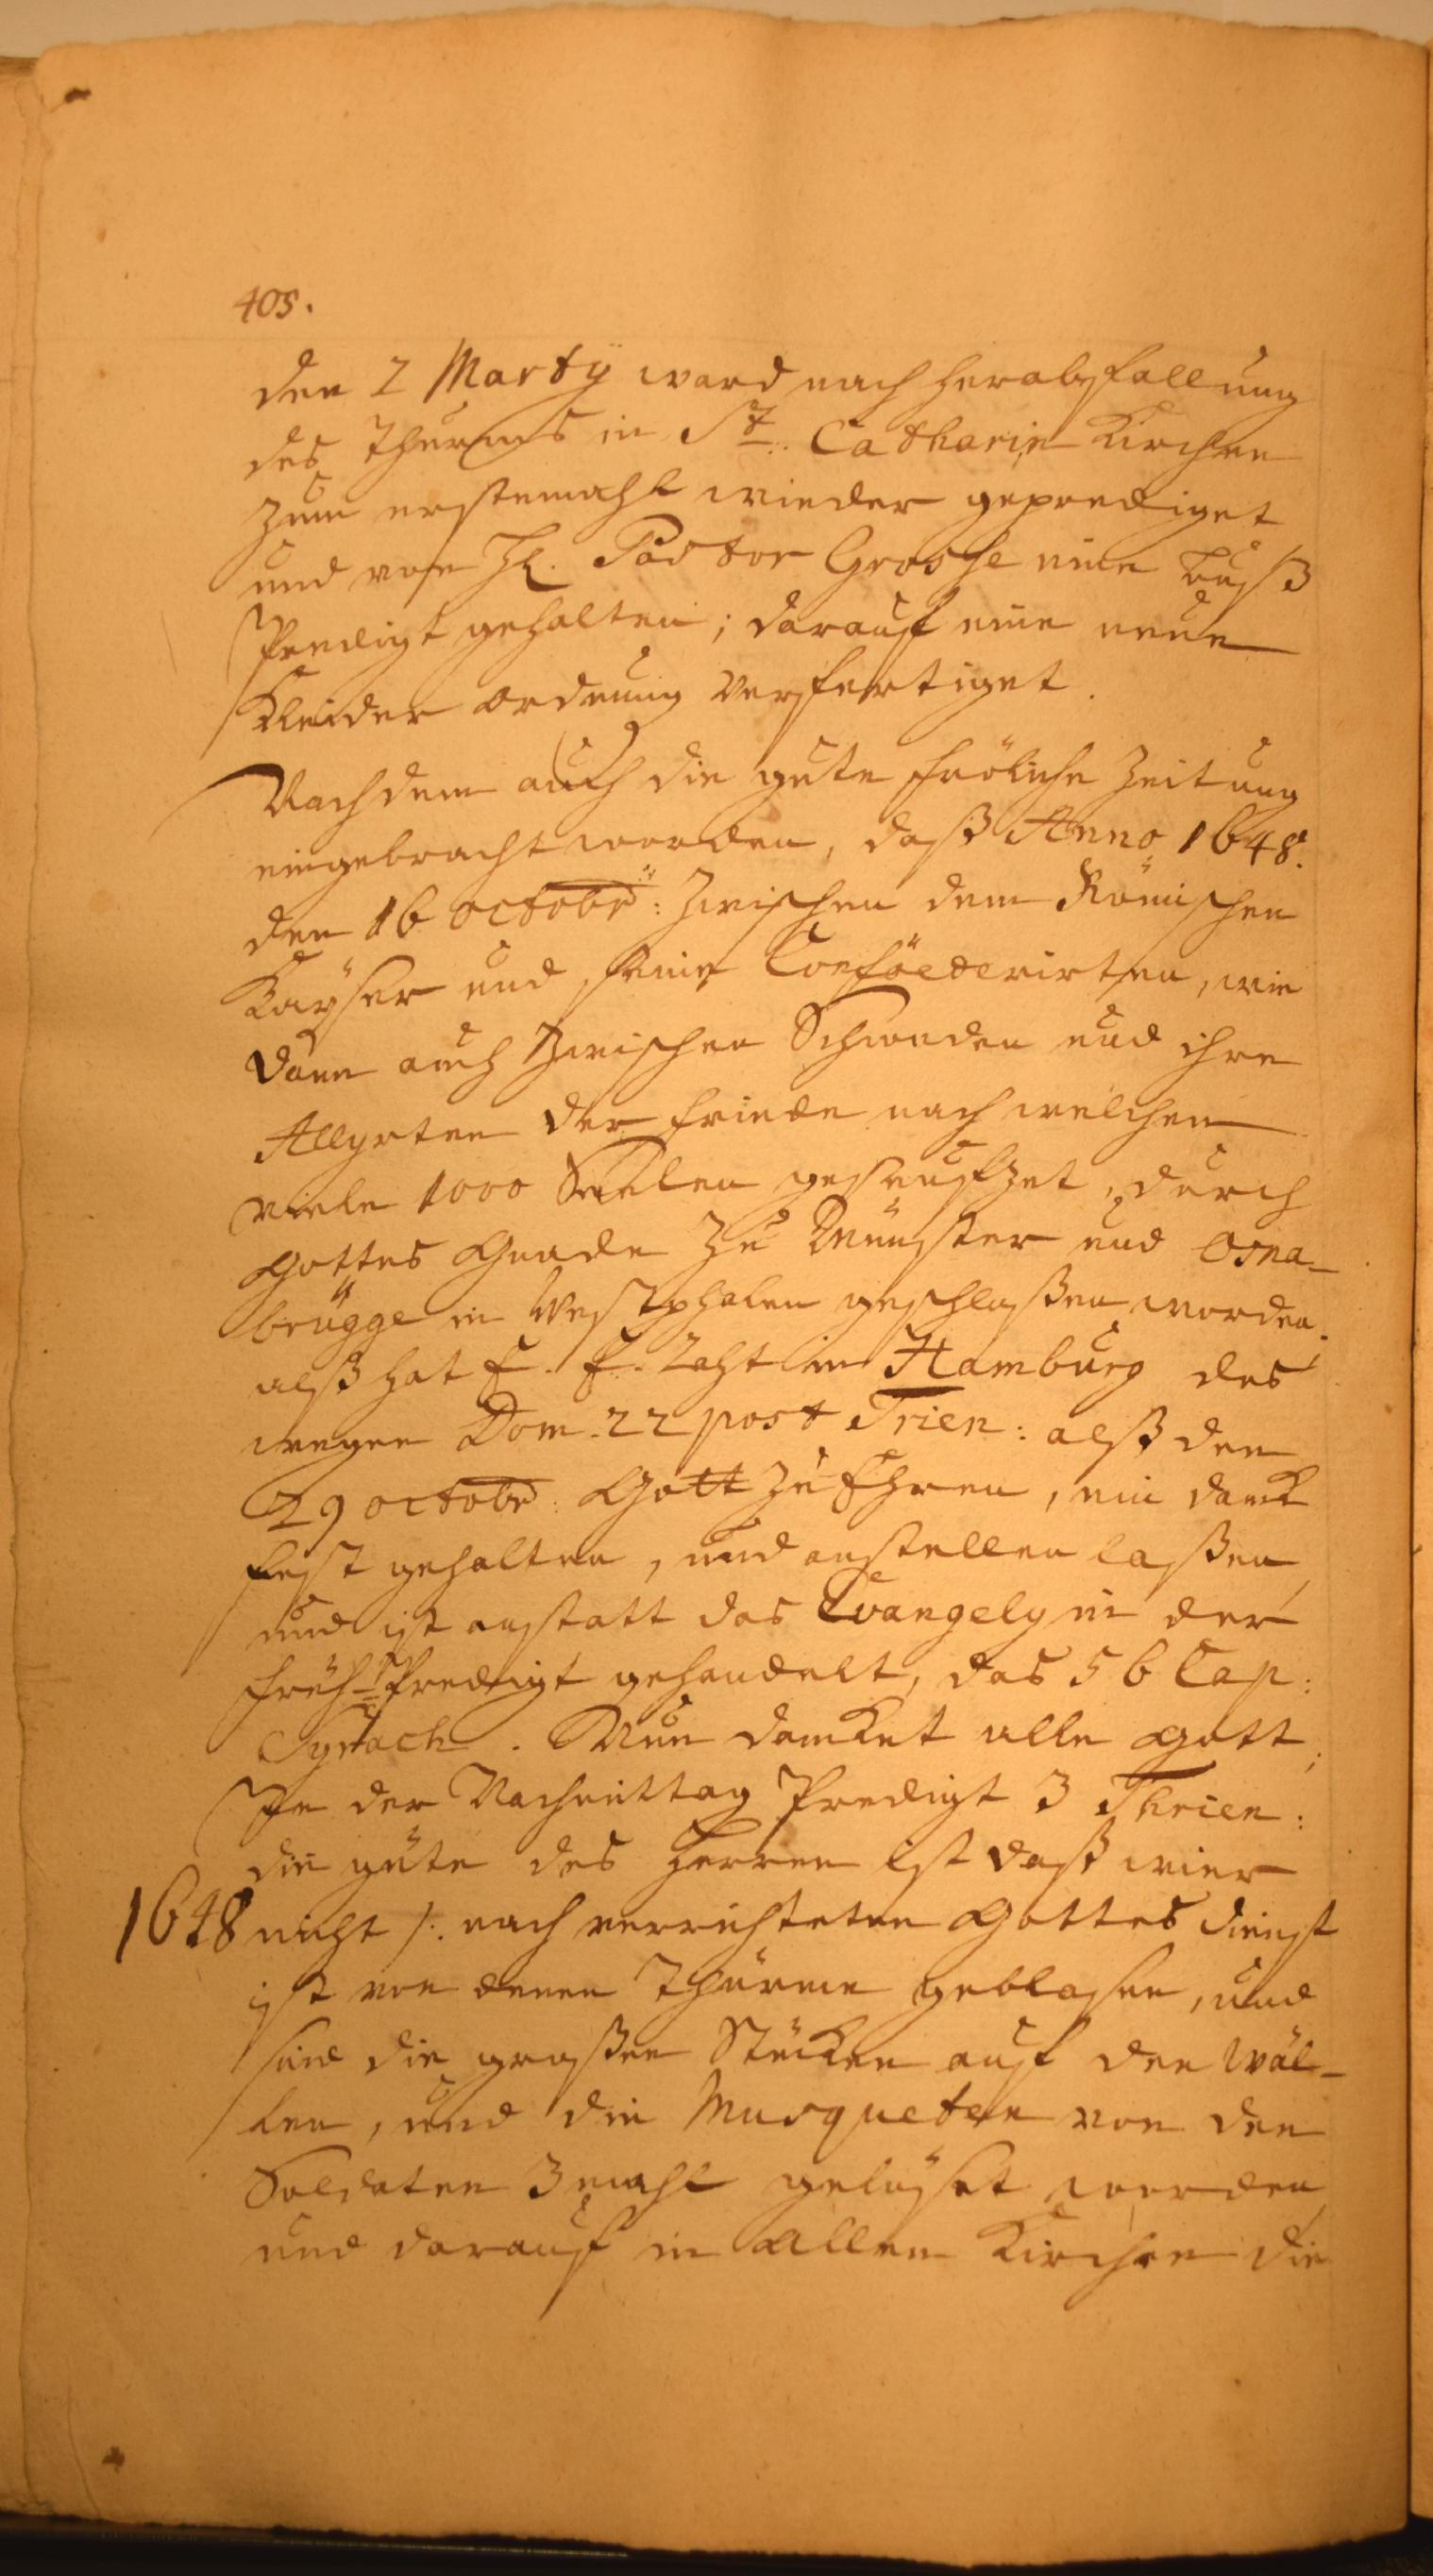 405.
den 2 Marty ward nach herabfallung
des Thurms in St. Catharin Kirchen
zum erstemahl wieder geprediget
und von H. Pastor Grosse eine buß
Predigt gehalten; darauf eine neue
Kleider ordnung verfertiget.
Nachdem auch die gute fröliche Zeitung
eingebracht worden, daß Anno 1648.
den 16 octobr: zwischen dem Römischen
Kayser und seine Confoederirten, wie
dann auch zwischen Schweden und ihre
Allyrten der friede nach welchen
viele 1000 Seelen geseufzet, durch
Gottes Gnade zu Münster und Osna-
brügge in Westphalen geschlossen worden.
alß hat E. E. Raht in Hamburg des
wegen Dom. 22 post Trien: alß den
29 octobr: Gott zu Ehren, ein danck
fest gehalten, und anstellen laßen,
und ist anstatt das Evangely in der
früh-Predigt gehandelt, das 56 Cap:
Syrach. Nun dancket alle Gott,
In der Nachmittag Predigt 3 Thrien:
die güte des Herren ist daß wier
1648 nicht /: nach verrichteten Gottes dienst
ist von denen Thürme geblasen, und
sind die großen Stücken auf den Wäl-
len, und die Musqueten von den
Soldaten 3 mahl gelöset worden
und darauf in allen Kirchen die